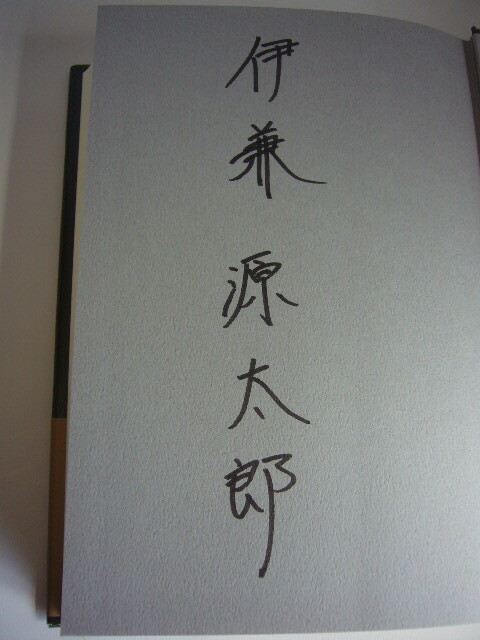 伊兼源太郎